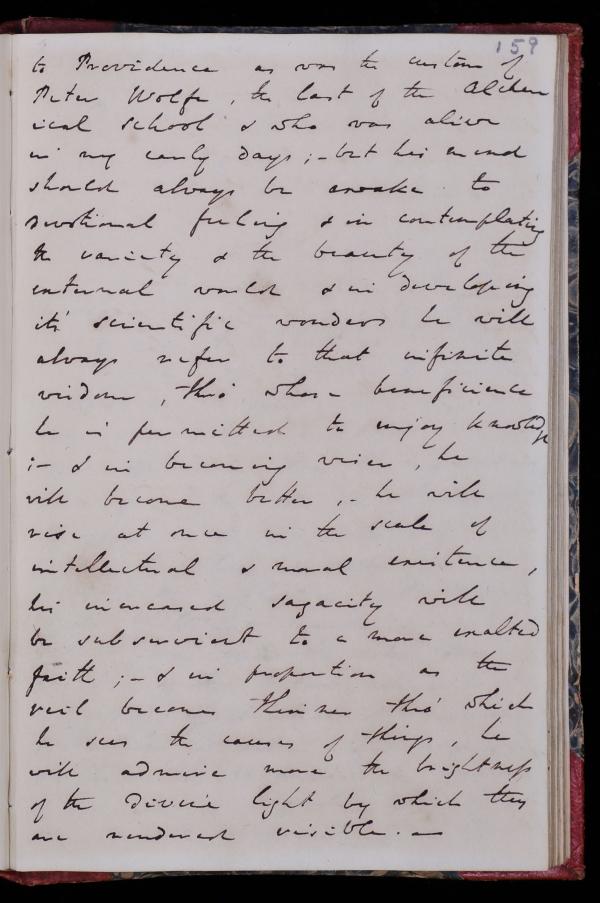 159
to Providence as was the custom of
Peter Wolfe, the last of the Alchem
ical school & who was alive
in my early days; – but his mind
should always be awake to
devotional feeling & in contemplating
the variety & the beauty of the
external world & in developing
its' scientific wonders he will
always refer to that infinite
wisdom, thro' whose beneficience
he is permitted to enjoy knowledge
; – & in becoming wiser, he
will become better, – he will
rise at once in the scale of
intellectual & moral existence,
his increased sagacity will
be subservient to a more exalted
faith; – & in proportion as the
veil becomes thinner thro' which
he sees the causes of things, he
will admire more the brightness
of the divine light by which they
are rendered visible. –